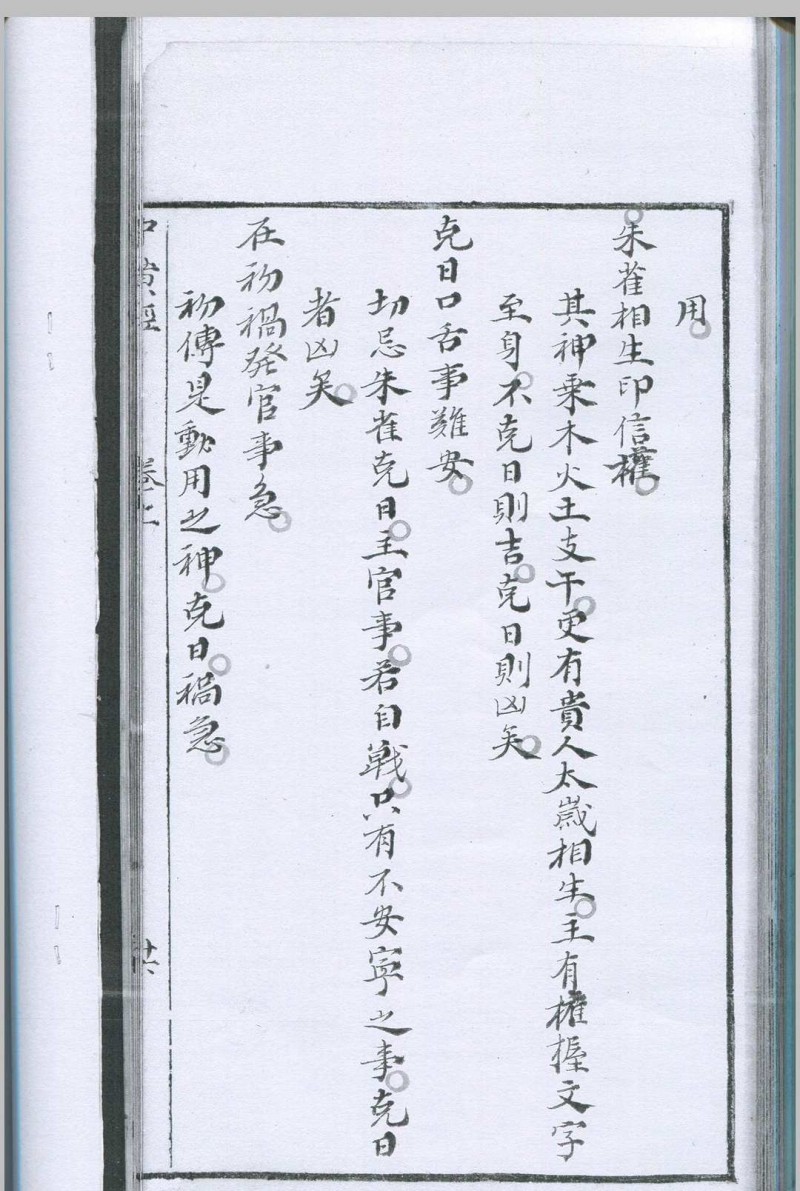 用
朱雀相生印信權
其神乘木火土支干更有貴人太歲相生主有權握文字
至身不克日則吉克日則凶矣
克日口舌事難安
切忌朱雀克日主官事若自戰只有不安寧之事克日
者凶矣
在初禍發官事急
初傳是動用之神克日禍急
中黃經 卷上 廿六